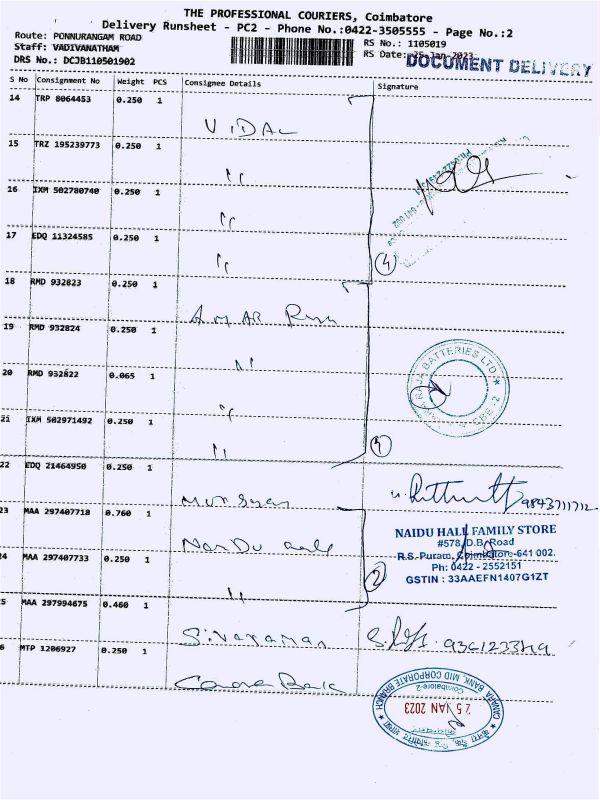 THE PROFESSIONAL COURIERS, Coimbatore
Delivery Runsheet - PC2 - Phone No.:0422-3505555 - Page No.:2
Route: PONNURANGAM ROAD
Staff: VADIVANATHAM
DRS No.: DCJB110501902
RS No.: 1105019
RS Date: 25-Jan-2023
DOCUMENT DELIVERY
S No Consignment No Weight PCS Consignee Details Signature
14 TRP 8064453 0.250 1
VIDAL
15 TRZ 195239773 0.250 1
"
16 IXM 502780740 0.250 1
"
17 EDQ 11324585 0.250 1
"
4
18 RMD 932823 0.250 1
AMAR Raja
19 RMD 932824 0.250 1
"
20 RMD 932822 0.065 1
"
21 IXM 502971492 0.250 1
"
4
BATTERIES LTD
CBE-2
22 EDQ 21464950 0.250 1
9843711712
23 MAA 297407718 0.760 1
Naidu
NAIDU HALL FAMILY STORE
#578, D.B. Road
R.S. Puram, Coimbatore-641 002.
Ph: 0422 - 2552151
GSTIN : 33AAEFN1407G1ZT
24 MAA 297407733 0.250 1
"
2
5 MAA 297994675 0.460 1
Sivaraman
6 MTP 1206927 0.250 1
Canara Bank
CANARA BANK, MID CORPORATE BRANCH
Coimbatore-2
25 JAN 2023